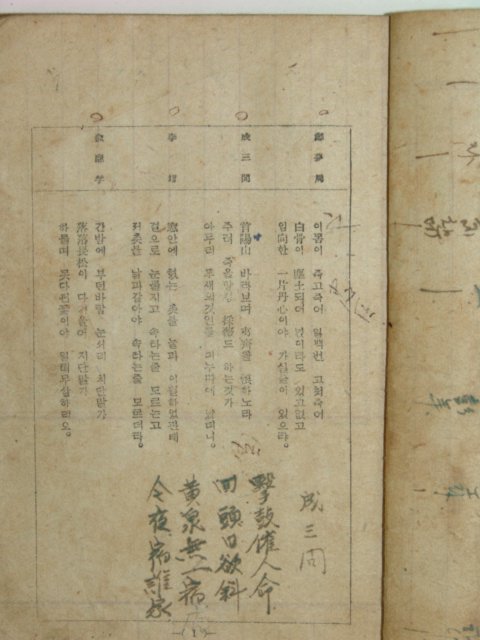 鄭夢周
이몸이 죽고죽어 일백번 고쳐죽어
白骨이 塵土되어 넋이라도 있고없고
임向한 一片丹心이야 가실줄이 있으랴。
成三問
首陽山 바라보며 夷齊를 恨하노라
주려 죽을망정 採薇도 하는것가
아무리 푸새엣것인들 긔뉘따에 났더니。
李塏
窓안에 혓는 촛불 눌과 이별하였관데
겉으로 눈물지고 속타는줄 모르는고
저촛불 날과같아야 속타는줄 모르더라。
兪應孚
간밤에 부던바람 눈서리 치단말가
落落長松이 다 기울어 지단말가
하물며 못다핀꽃이야 일러무삼하리오。
成三问
擊鼓催人命
回頭日欲斜
黄泉無一宿
今夜宿誰家
(1)